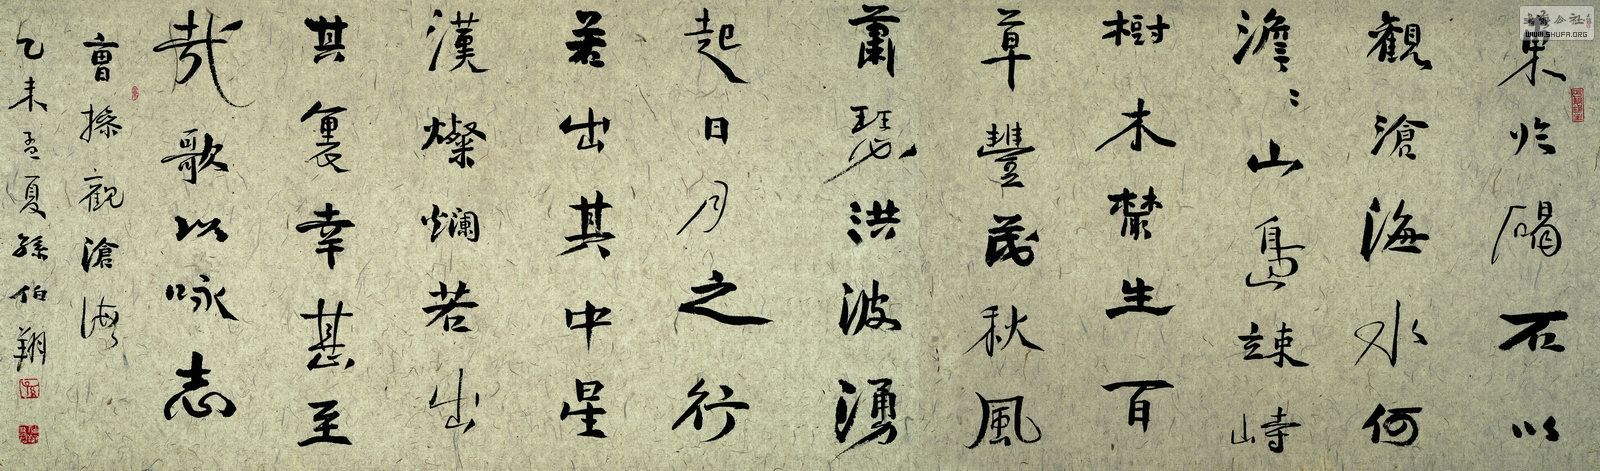 東臨碣石以
觀滄海水何
澹澹山島竦峙
樹木叢生百
草豐茂秋風
蕭瑟洪波湧
起日月之行
若出其中星
漢燦爛若出
其裏幸甚至
哉歌以咏志
曹操觀滄海
乙未孟夏孫伯翔
WWW.SHUFA.ORG